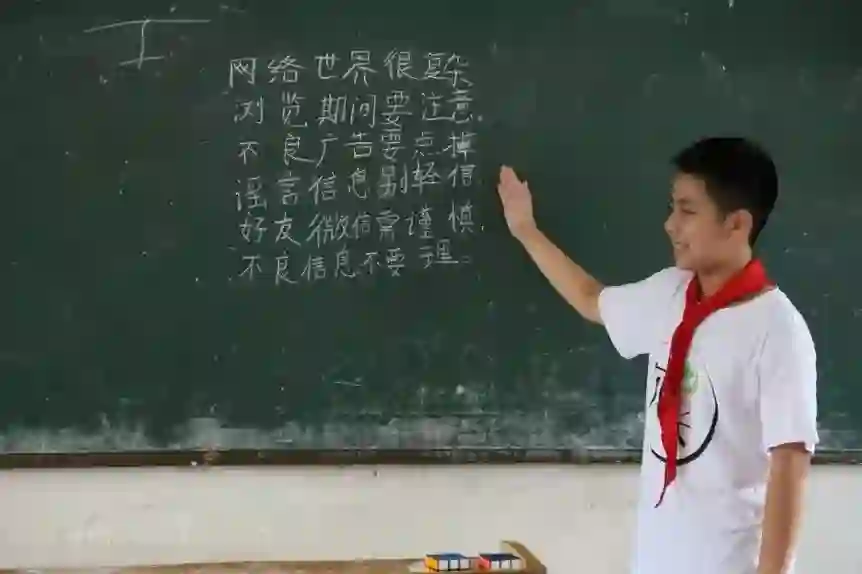 网络世界很复杂
浏览期间要注意
不良广告要点掉
谣言信息别轻信
好友微信需谨慎
不良信息不要理。